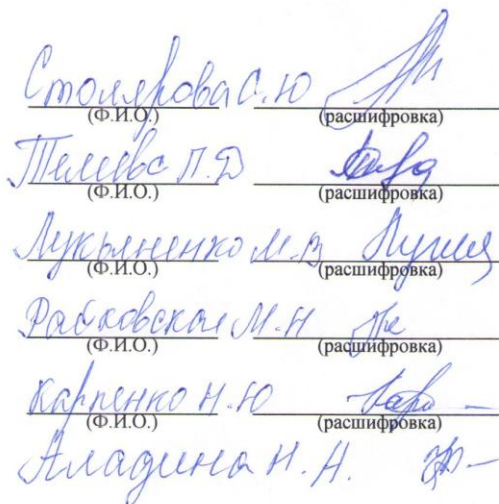 Столярова С.Ю
(Ф.И.О.) (расшифровка)
П.Д
(Ф.И.О.) (расшифровка)
Лукьяненко М.В
(Ф.И.О.) (расшифровка)
М.Н
(Ф.И.О.) (расшифровка)
Карпенко Н.Ю
(Ф.И.О.) (расшифровка)
Аладина Н.Н.